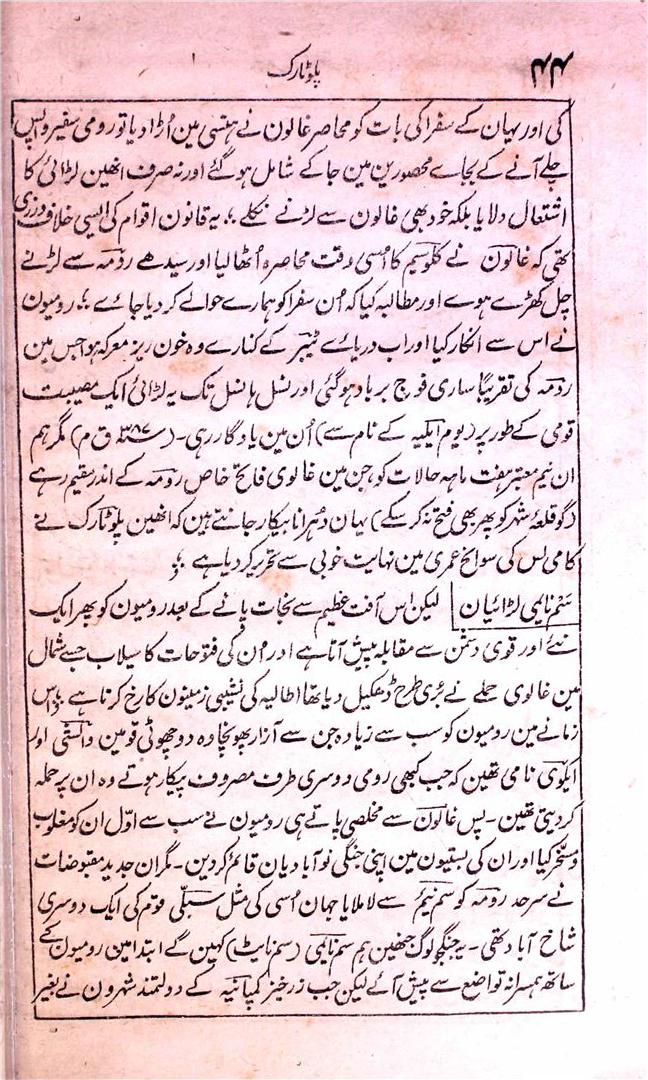 ۴۴
پلوٹارک
کی اور یہان کے سفرا کی بات کو محاصر غالون نے ہنسی مین اُڑا دیا تو رومی سفیر واپس
چلے آنے کے بجاے محصورین مین جا کے شامل ہو گئے اور نہ صرف انھین لڑائی کا
اشتعال دلایا بلکہ خود بھی غالون سے لڑنے نکلے ؛؛ یہ قانون اقوام کی ایسی خلاف ورزی
تھی کہ غالون نے کلوسیم کا اُسی وقت محاصرہ اُٹھا لیا اور سیدھے رومہ سے لڑنے
چل کھڑے ہوے اور مطالبہ کیا کہ اُن سفرا کو ہمارے حوالے کر دیا جاے ؛؛ رومیون
نے اس سے انکار کیا اور اب دریاے ٹیبر کے کنارے وہ خون ریز معرکہ ہوا جس مین
رومہ کی تقریباً ساری فوج برباد ہو گئی اور نسل ہا نسل تک یہ لڑائی ایک مصیبت
قومی کے طور پر (یوم ایلیہ کے نام سے) اُن مین یادگار رہی۔ (۳۸۷ ق م) مگر ہم
ان نیم معتبر ہفت ماہہ حالات کو، جن مین غالوی فاتح خاص رومہ کے اندر مقیم رہے
(گو قلعۂ شہر کو پھر بھی فتح نہ کر سکے) یہان دُہرانا بیکار جانتے ہین کہ انھین پلوٹارک نے
کامی لس کی سوانح عمری مین نہایت خوبی سے تحریر کر دیا ہے ؛؛
سَم نایمی لڑائیان لیکن اس آفت عظیم سے نجات پانے کے بعد رومیون کو پھر ایک
نئے اور قوی دشمن سے مقابلہ پیش آتا ہے اور اُن کی فتوحات کا سیلاب جسے شمال
مین غالوی حملے نے بُری طرح ڈھکیل دیا تھا اطالیہ کی نشیبی زمینون کا رخ کرتا ہے ؛؛ اس
زمانے مین رومیون کو سب سے زیادہ جن سے آزار پھونچا وہ دو چھوٹی قومین والسقی اور
ایکوی نامی تھین کہ جب کبھی رومی دوسری طرف مصروف پیکار ہوتے وہ ان پر حملہ
کر دیتی تھین۔ پس غالون سے مخلصی پاتے ہی رومیون نے سب سے اوّل ان کو مغلوب
و مسخّر کیا اور ان کی بستیون مین اپنی جنگی نو آبادیان قائم کر دین۔ مگر ان جدید مقبوضات
نے سرحد رومہ کو سم نیَم سے لا ملایا جہان اُسی کی مثل سبلّی قوم کی ایک دوسری
شاخ آباد تھی۔ یہ جنگجو لوگ جنھین ہم سم نایمی (سم نایٹ) کہین گے ابتدا مین رومیون کے
ساتھ ہمسرانہ تواضع سے پیش آئے لیکن جب زرخیز کمپانیہ کے دولتمند شہرون نے بغیر